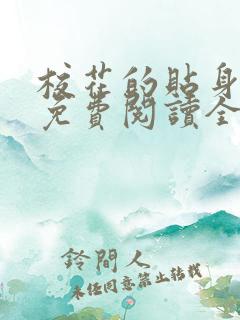 校花的貼身
免費閱讀全
鈴間人
未經同意禁止轉載